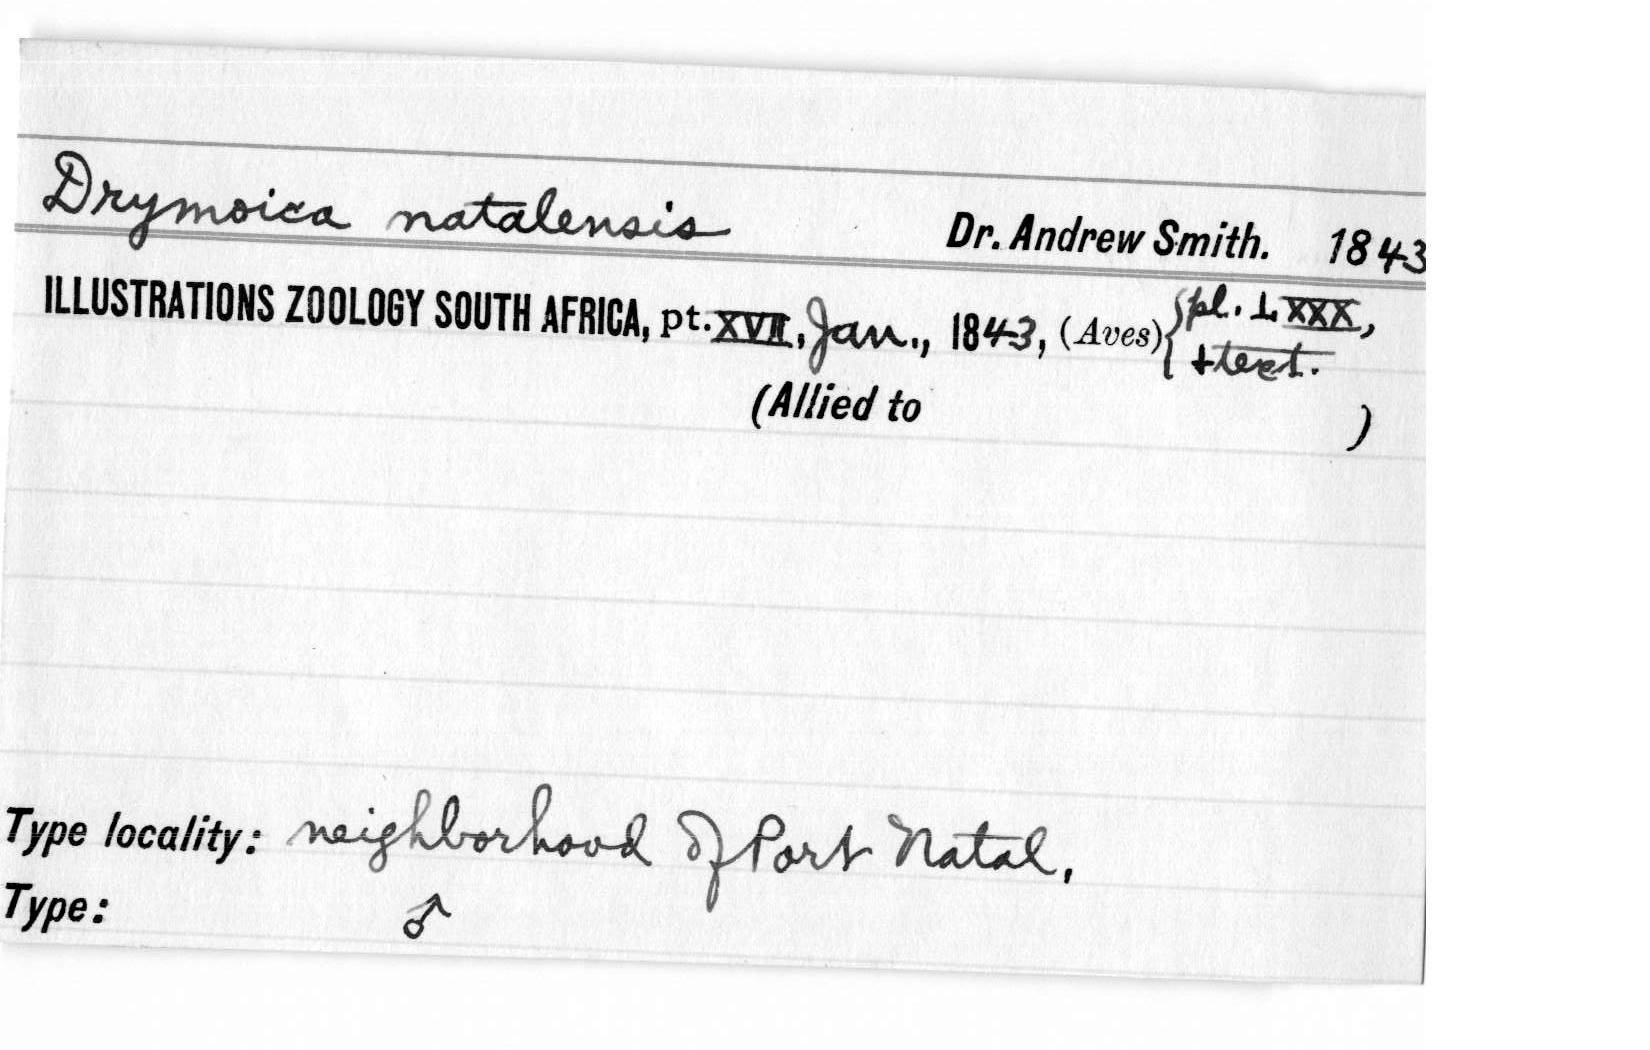 Drymoica natalensis Dr. Andrew Smith. 1843
ILLUSTRATIONS ZOOLOGY SOUTH AFRICA, pt. XVII, Jan., 1843, (Aves) { pl. LXXX,
+ text.
(Allied to )
Type locality: neighborhood of Port Natal.
Type: ♂